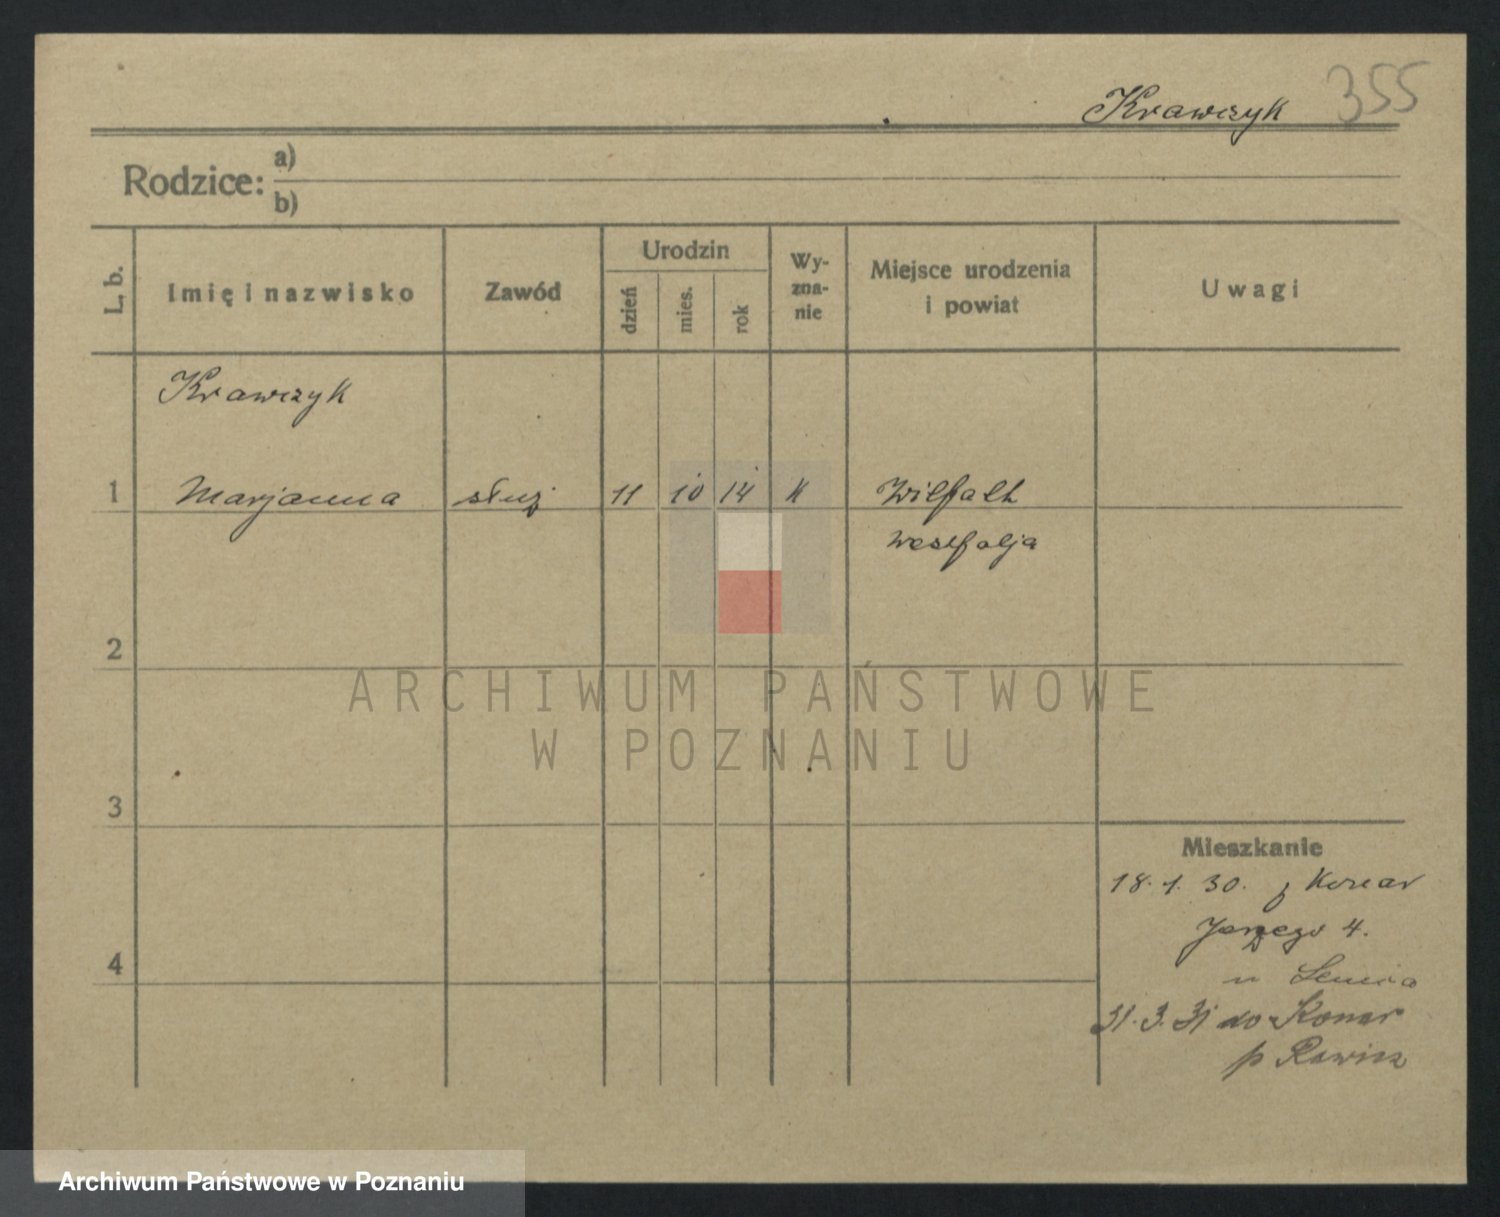 Krawczyk 355
Rodzice: a)
b)
L. b.
Imię i nazwisko
Zawód
Urodzin
dzień
mies.
rok
Wy-
zna-
nie
Miejsce urodzenia
i powiat
Uwagi
Krawczyk
1 Marjanna służ 11 10 14 k Wilfalt
Westfalja
2
3
4
Mieszkanie
18. 1. 30. z Konar
4.
u
31. 3. 31 do Konar
p Rawicz
ARCHIWUM PAŃSTWOWE
W POZNANIU
Archiwum Państwowe w Poznaniu